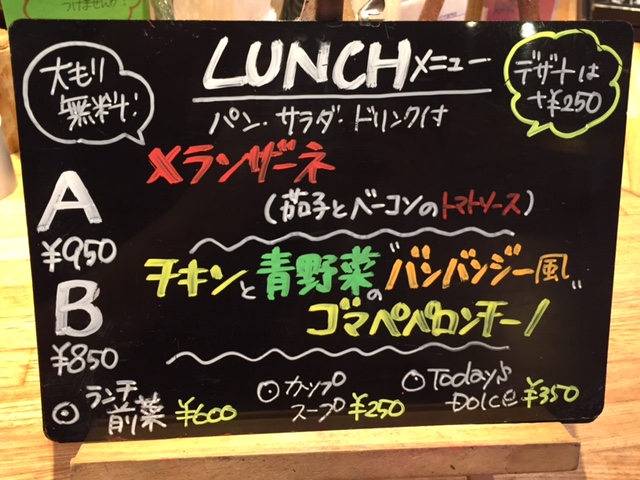 つけませんか!
大もり
無料!
LUNCHメニュー
デザートは
+¥250
パン・サラダ・ドリンク付
A
¥950
メランザーネ
(茄子とベーコンのトマトソース)
B
¥850
チキンと青野菜の"バンバンジー風"
ゴマペペロンチーノ
ランチ
前菜 ¥600
カップ
スープ ¥250
Today♪
Dolce ¥350